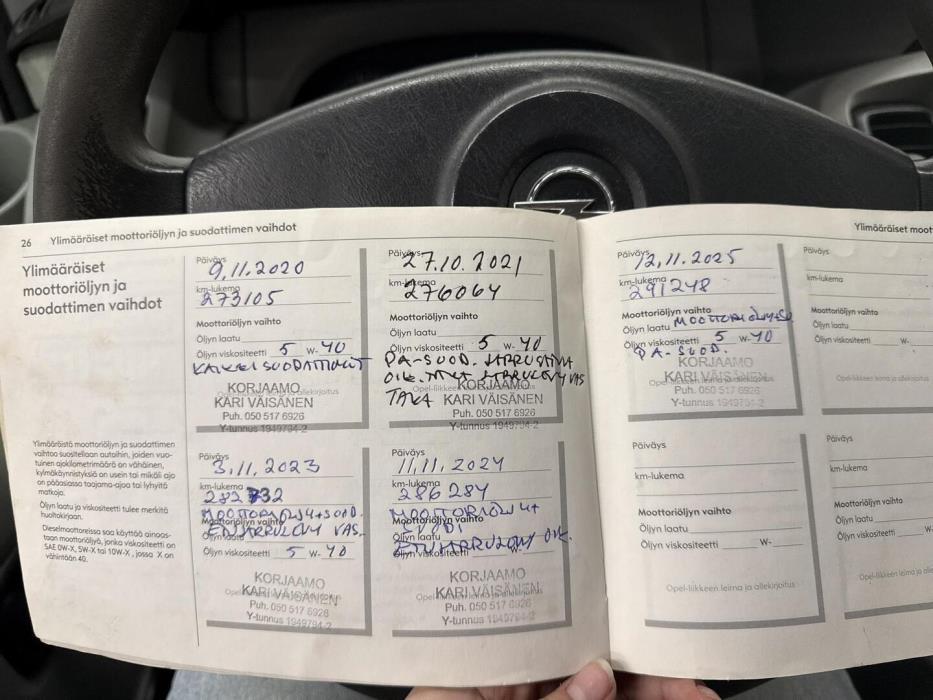 26 Ylimääräiset moottoriöljyn ja suodattimen vaihdot
Ylimääräiset
moottoriöljyn ja
suodattimen vaihdot
Ylimääräistä moottoriöljyn ja suodattimen
vaihtoa suositellaan autoihin, joiden vuo-
tuinen ajokilometrimäärä on vähäinen,
kylmäkäynnistyksiä on usein tai mikäli ajo
on pääasiassa taajama-ajoa tai lyhyitä
matkoja.
Öljyn laatu ja viskositeetti tulee merkitä
huoltokirjaan.
Dieselmoottoreissa saa käyttää ainoas-
taan moottoriöljyä, jonka viskositeetti on
SAE 0W-X, 5W-X tai 10W-X , jossa X on
vähintään 40.
Päiväys
9.11.2020
km-lukema
273105
Moottoriöljyn vaihto
Öljyn laatu
Öljyn viskositeetti 5 W- 40
KAIKKI SUODATTIMET
KORJAAMO
KARI VÄISÄNEN
Puh. 050 517 6926
Y-tunnus 1949794-2
Päiväys
27.10.2021
km-lukema
276064
Moottoriöljyn vaihto
Öljyn laatu
Öljyn viskositeetti 5 W- 40
PA-SUOD.
OIK. JARRULEVY VAS
TAKA
KORJAAMO
Opel-liikkeen leima ja allekirjoitus
KARI VÄISÄNEN
Puh. 050 517 6926
Y-tunnus 1949794-2
Päiväys
3.11.2023
km-lukema
282732
MOOTTORIÖLJY+SUOD.
Moottoriöljyn vaihto
ETUJARRULEVY VAS.
Öljyn laatu
Öljyn viskositeetti 5 W- 40
KORJAAMO
KARI VÄISÄNEN
Puh. 050 517 6926
Y-tunnus 1949794-2
Päiväys
11.11.2024
km-lukema
286284
MOOTTORIÖLJY+
Moottoriöljyn vaihto
SUOD.
Öljyn laatu
ETUJARRULEVY OIK.
Öljyn viskositeetti W-
KORJAAMO
KARI VÄISÄNEN
Puh. 050 517 6926
Y-tunnus 1949794-2
Ylimääräiset moot
Päiväys
12.11.2025
km-lukema
291248
Moottoriöljyn vaihto
Öljyn laatu MOOTTORIÖLJY+SU
Öljyn viskositeetti 5 W- 40
PA-SUOD.
KORJAAMO
KARI VÄISÄNEN
Opel-liikkeen leima ja allekirjoitus
Puh. 050 517 6926
Y-tunnus 1949794-2
Päiväys
km-lukema
Moottoriöljyn vaihto
Öljyn laatu
Öljyn viskositeetti W-
Opel-liikkeen leima ja allekirjoitus
Päiväys
km-lukema
Moottoriöljyn vaihto
Öljyn laatu
Öljyn viskositeetti W-
Opel-liikkeen leima ja allekirjoitus
Päiväys
km-lukema
Moottoriöljyn vaihto
Öljyn laatu
Öljyn viskositeetti W-
Opel-liikkeen leima ja alle